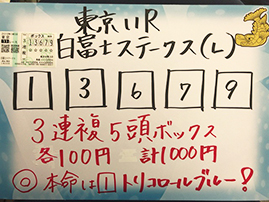 東京11R
白富士ステークス(L)
ボックス
1 3 6 7 9
1 3 6 7 9
3連複5頭ボックス
各100円 計1000円
◎本命は1トリコロールブルー!